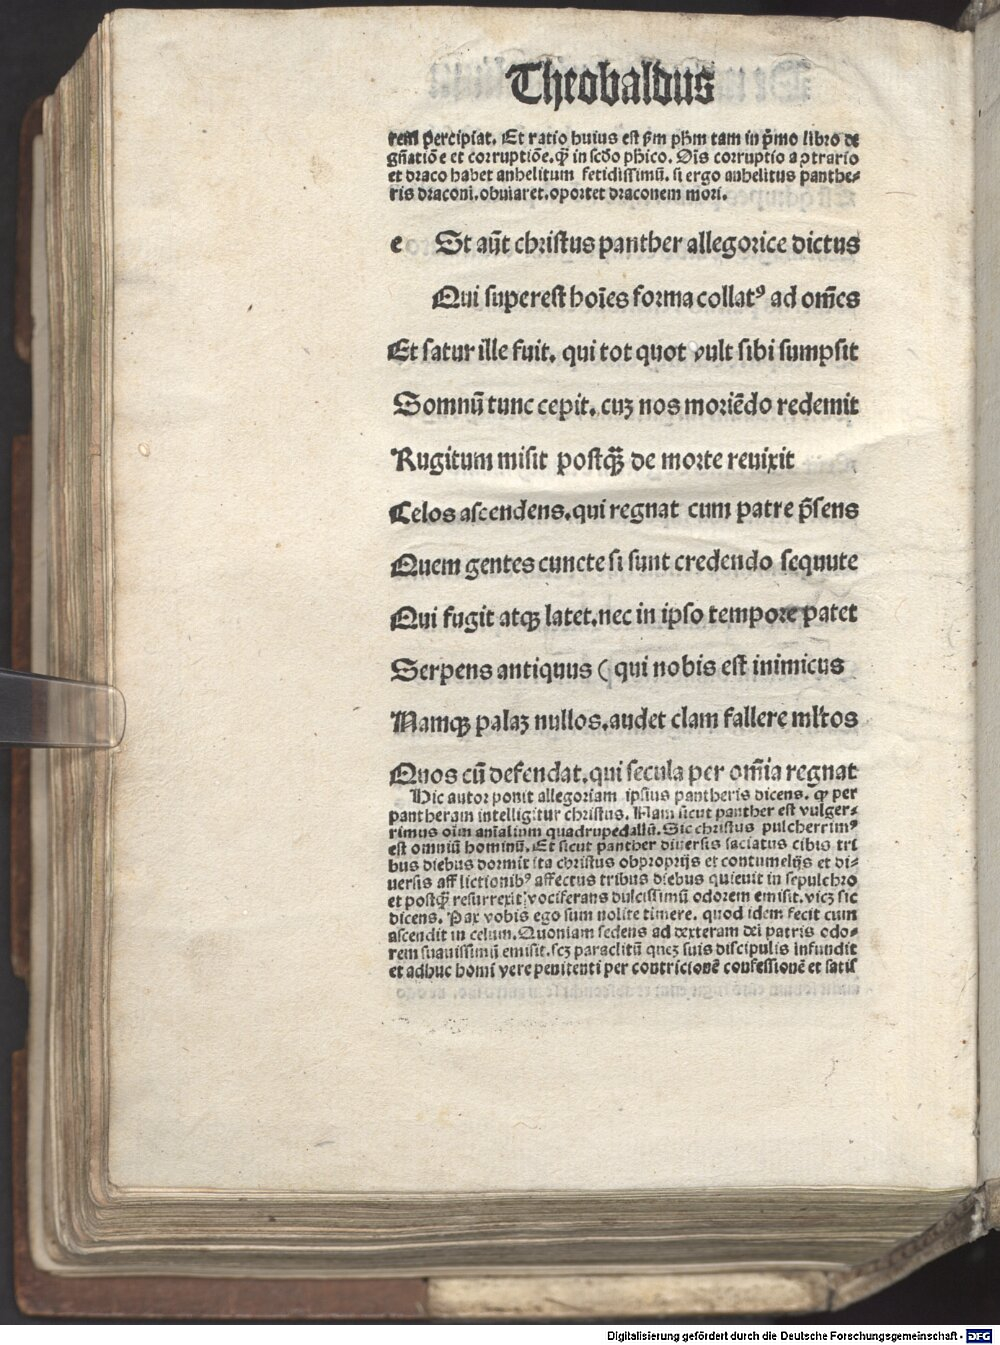 Theobaldus
rem percipiat. Et ratio huius est ẜm pħm tam in p̄mo libro de
gn̄atiōe et corruptiōe. ꝙ in scd̄o pħico. Oīs corruptio a ꝯtrario
et draco habet anhelitum fetidissimū. si ergo anhelitus panthe⸗
ris draconi. obuiaret. oportet draconem mori.
e St aūt christus panther allegorice dictus
Qui superest hoīes forma collatꝰ ad om̄es
Et satur ille fuit. qui tot quot vult sibi sumpsit
Somnū tunc cepit. cuȝ nos moriēdo redemit
Rugitum misit postqͣ̄ de morte reuixit
Celos ascendens. qui regnat cum patre p̄sens
Quem gentes cuncte si sunt credendo sequute
Qui fugit atqꝫ latet. nec in ipso tempore patet
Serpens antiquus ( qui nobis est inimicus
Namqꝫ palaȝ nullos. audet clam fallere ml̄tos
Quos cū defendat. qui secula per om̄ia regnat
Hic autor ponit allegoriam ipsius pantheris dicens. ꝙ per
pantheram intelligitur christus. Nam sicut panther est vulger⸗
rimus oīm anīalium quadrupedaliū. Sic christus pulcherrimꝰ
est omniū hominū. Et sicut panther diuersis saciatus cibis tri
bus diebus dormit ita christus obproprijs et contumelijs et di⸗
uersis afflictionibꝰ affectus tribus diebus quieuit in sepulchro
et postqͣ̄ resurrexit vociferans dulcissimū odorem emisit. vicȝ sic
dicens. Pax vobis ego sum nolite timere. quod idem fecit cum
ascendit in celum. Quoniam sedens ad dexteram dei patris odo⸗
rem suauissimū emisit. scȝ paraclitū queȝ suis discipulis infundit
et adhuc homi vere penitenti per contricionē confessionē et satis
Digitalisierung gefördert durch die Deutsche Forschungsgemeinschaft - DFG